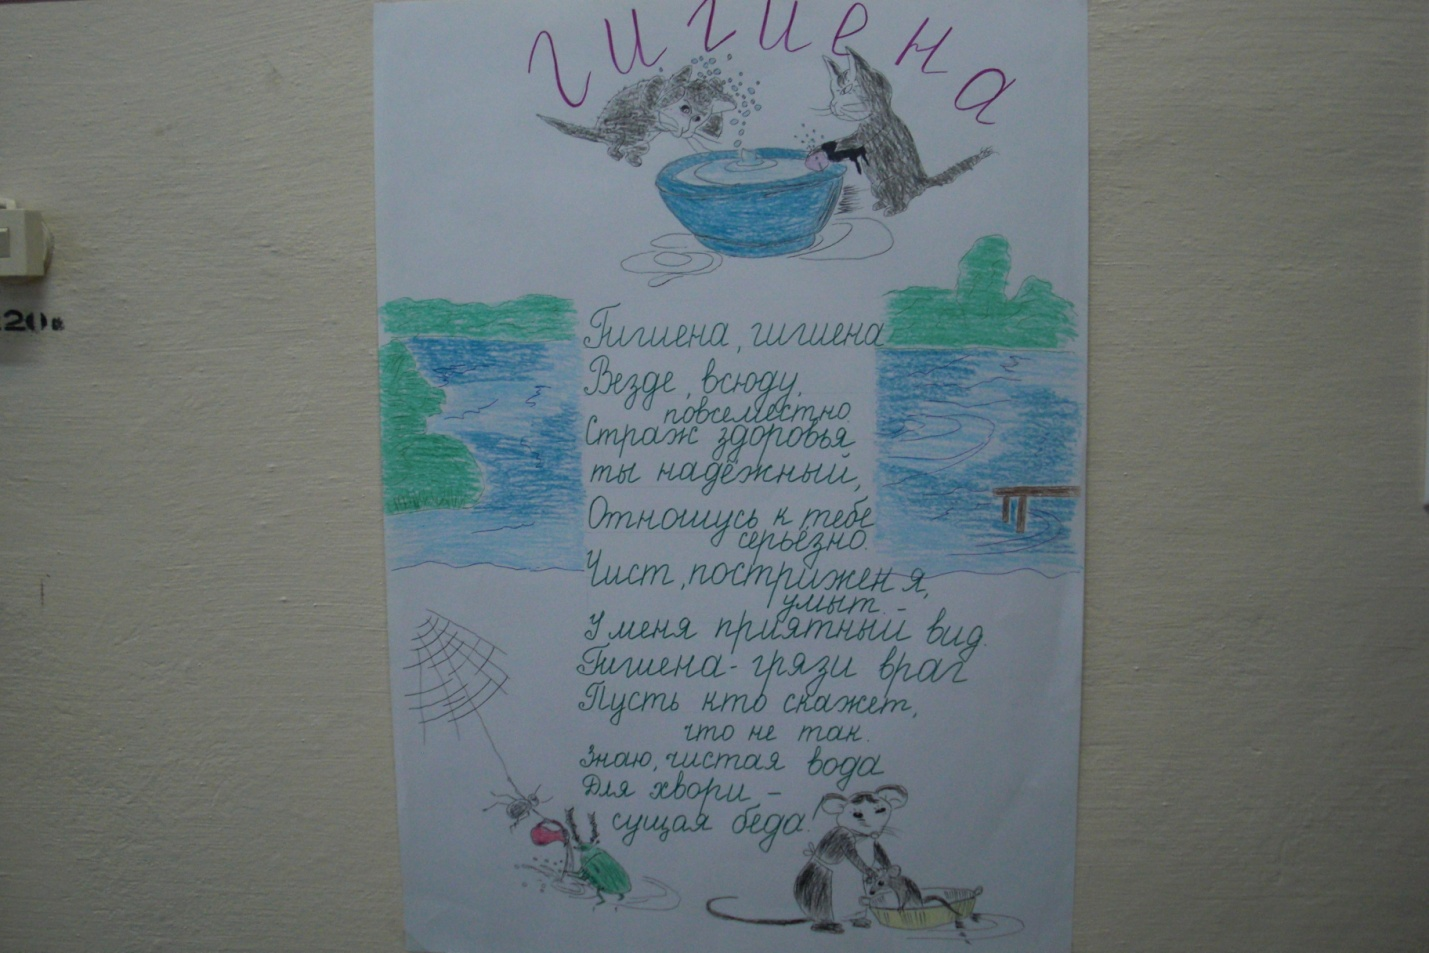 гигиена
Гигиена, гигиена
Везде, всюду,
повсеместно
Страж здоровья
ты надёжный,
Отношусь к тебе
серьёзно.
Чист, пострижен я,
умыт –
У меня приятный вид.
Гигиена - грязи враг
Пусть кто скажет,
что не так.
Знаю, чистая вода
Для хвори –
сущая беда!